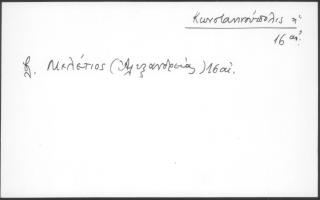 Κωνσταντινούπολις ἢ
16 αἰ.
β. Μελέτιος (Ἀλεξανδρείας) 16 αἰ.